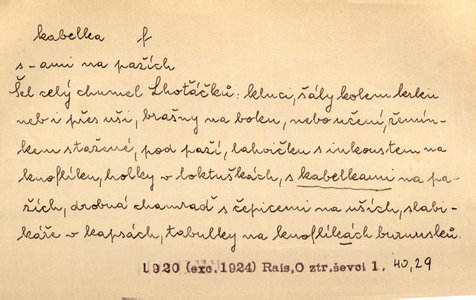 kabelka f
s-ami na pažích
Šel celý chumel Lhoťáčků: kluci, šály kolem krku
neb i přes uši, brašny na boku, nebo učení, řemín-
kem stažené, pod paží, lahvičku s inkoustem na
knoflíku, holky v loktuškách, s kabelkami na pa-
žích, drobná chamraď s čepicemi na uších, slabi-
káře v kapsách, tabulky na knoflíkách burnusků.
L920 (exc.1924) Rais,O ztr.ševci 1. 40,29